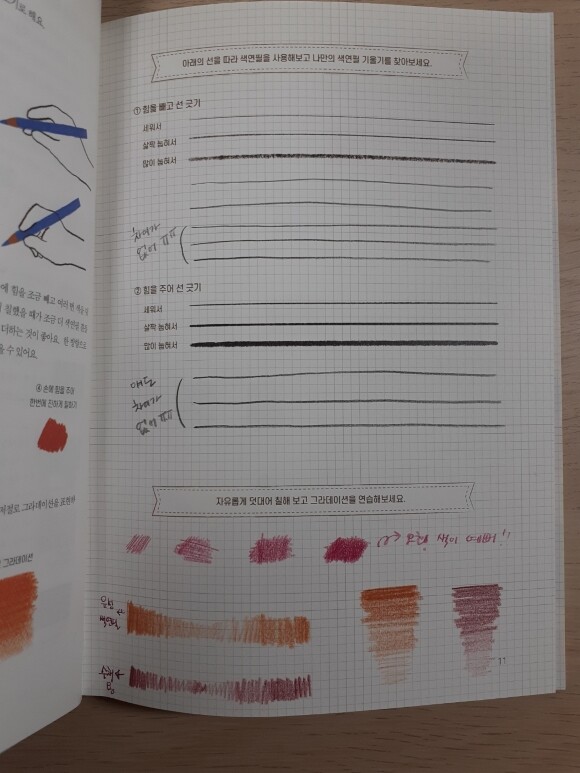 기로 해요.
에 힘을 조금 빼고 여러 번 색을
칠했을 때가 조금 더 색연필
더하는 것이 좋아요. 한 방향으로
을 수 있어요.
④ 손에 힘을 주어
한번에 진하게 칠하기
그라데이션을 표현하
그라데이션
아래의 선을 따라 색연필을 사용해보고 나만의 색연필 기울기를 찾아보세요.
① 힘을 빼고 선 긋기
세워서
살짝 눕혀서
많이 눕혀서
차이가
없어 ㅠㅠ
② 힘을 주어 선 긋기
세워서
살짝 눕혀서
많이 눕혀서
얘도
차이가
없어 ㅠㅠ
자유롭게 덧대어 칠해 보고 그라데이션을 연습해보세요.
색이 예뻐
11